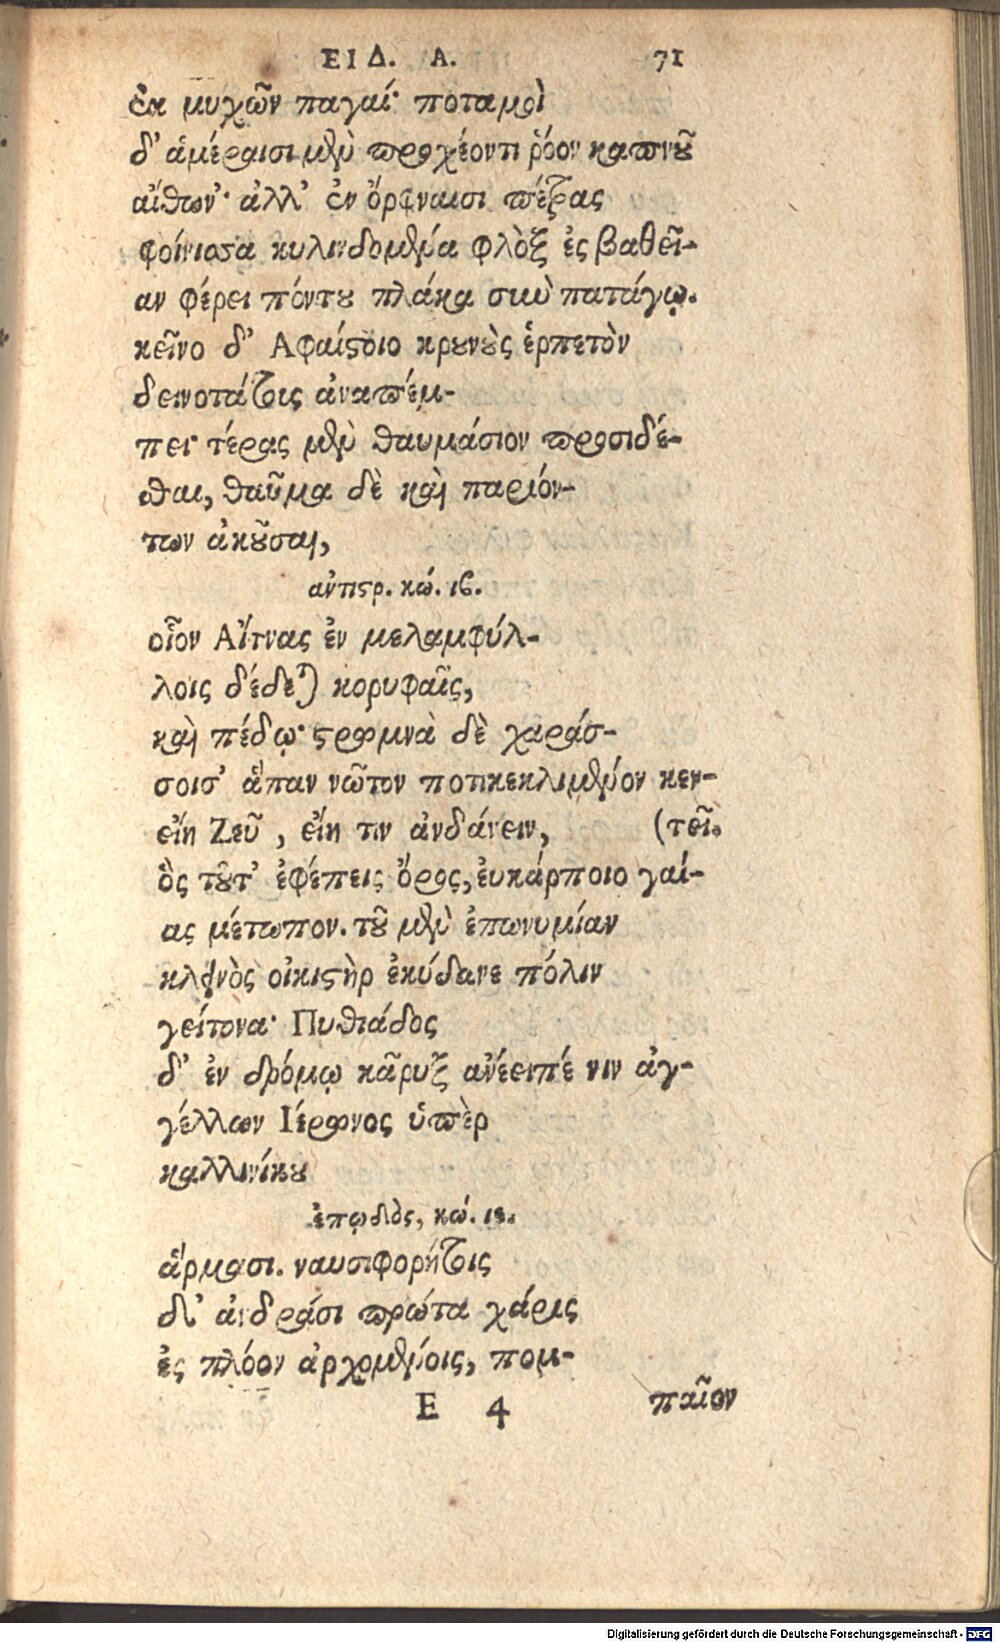 ΕΙΔ. Α. 71
ἐκ μυχῶν παγαί· ποταμοὶ
δ' ἁμέραισι μὲν προχέοντι ῥόον καπνοῦ
αἴθων· ἀλλ' ἐν ὄρφναισι πέτρας
φοίνισσα κυλινδομένα φλὸξ ἐς βαθεῖ-
αν φέρει πόντου πλάκα σὺν πατάγῳ.
κεῖνο δ' Αφαίστοιο κρουνοὺς ἑρπετὸν
δεινοτάτους ἀναπέμ-
πει· τέρας μὲν θαυμάσιον προσιδέ-
σθαι, θαῦμα δὲ καὶ παριόν-
των ἀκοῦσαι,
ἀντιστρ. κώ. ιϛ.
οἷον Αἴτνας ἐν μελαμφύλ-
λοις δέδεται κορυφαῖς,
καὶ πέδῳ· στρωμνὰ δὲ χαράσ-
σοισ' ἅπαν νῶτον ποτικεκλιμένον κεν-
εἴη Ζεῦ, εἴη τιν ἁνδάνειν, (τεῖ.
ὃς τοῦτ' ἐφέπεις ὄρος, εὐκάρποιο γαί-
ας μέτωπον. τοῦ μὲν ἐπωνυμίαν
κλεινὸς οἰκιστὴρ ἐκύδανε πόλιν
γείτονα· Πυθιάδος
δ' ἐν δρόμῳ κᾶρυξ ἀνέειπέ νιν ἀγ-
γέλλων Ιέρωνος ὑπὲρ
καλλινίκου
ἐπῳδὸς, κώ. ιε.
ἅρμασι. ναυσιφορήτοις
δ' ἀνδράσι πρώτα χάρις
ἐς πλόον ἀρχομένοις, πομ-
E 4 παῖον
Digitalisierung gefördert durch die Deutsche Forschungsgemeinschaft - DFG